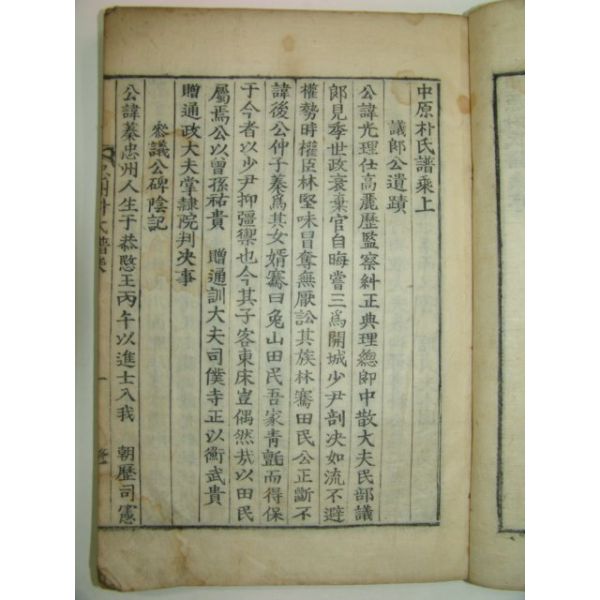 中原朴氏譜乘上
議郎公遺蹟
公諱光理仕高麗歷監察糾正典理總郎中散大夫民部議
郎見季世政衰棄官自晦嘗三爲開城少尹剖决如流不避
權勢時權臣林堅味冒奪無厭訟其族林騫田民公正斷不
諱後公仲子蓁爲其女婿騫曰兔山田民吾家靑氈而得保
于今者以少尹抑彊禦也今其子客東床豈偶然㢤以田民
屬焉公以曾孫祐貴 贈通訓大夫司僕寺正以衡武貴
贈通政大夫掌隷院判决事
叅議公碑陰記
公諱蓁忠州人生于恭愍王丙午以進士入我 朝歷司憲
州朴氏譜
一